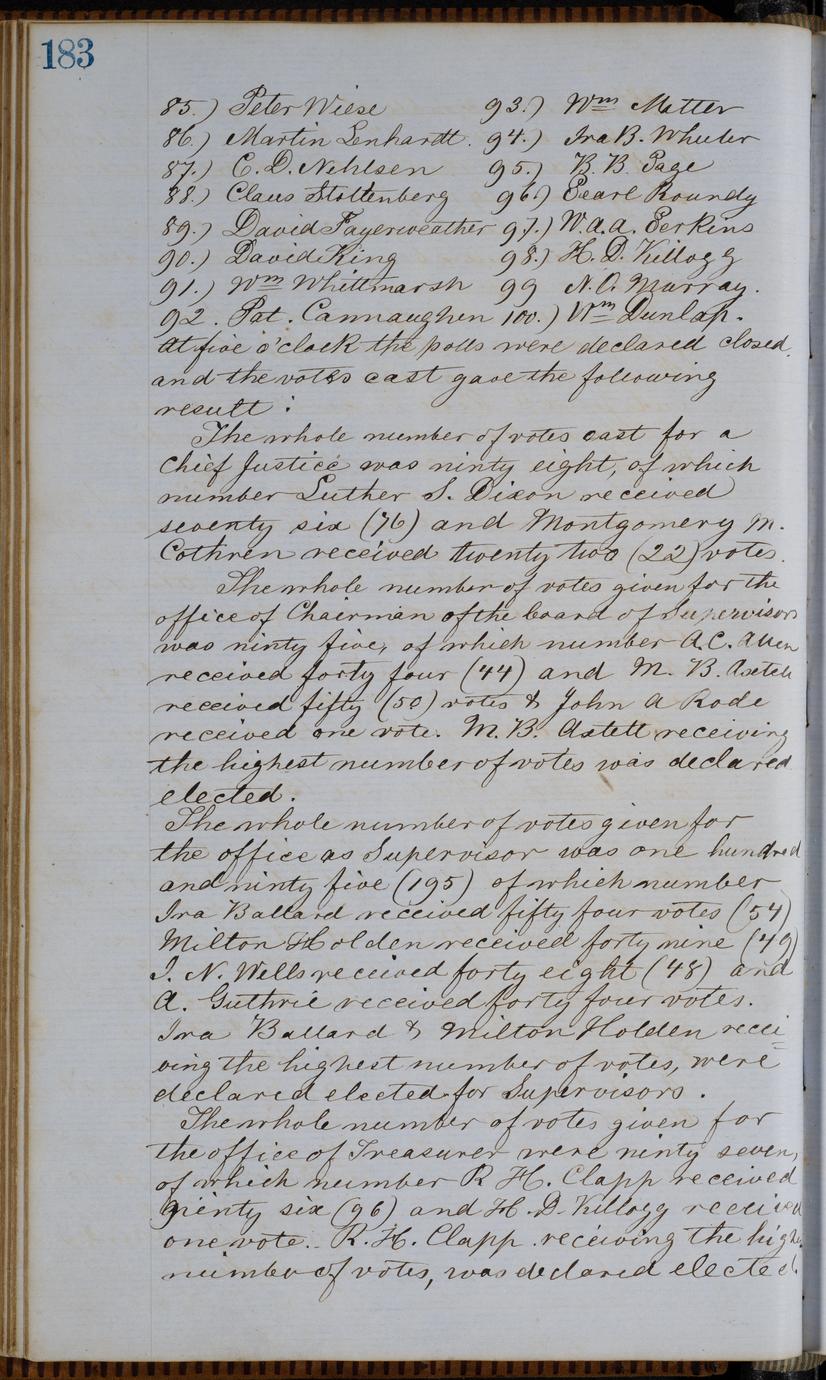 183
85.) Peter Wiese 93.) Wm Matter
86.) Martin Lenhardt. 94.) Ira B. Wheeler
87.) C. D. Nehlsen 95.) B. B. Page
88.) Claus Stoltenberg 96.) Pearl Roundy
89.) David Fayerweather 97.) W. A. A. Perkins
90.) David King 98.) H. D. Killogg
91.) Wm Whittmarsh 99 N. O. Murray.
92. Pat. Cannaughen 100.) Wm Dunlap.
At five o'clock the polls were declared closed,
and the votes cast gave the following
result:
The whole number of votes cast for a
Chief Justice was ninety eight, of which
number Luther S. Dixon received
seventy six (76) and Montgomery M.
Cothren received twenty two (22) votes.
The whole number of votes given for the
office of Chairman of the board of Supervisors
was ninety five, of which number A. C. Allen
received forty four (44) and M. B. Axtell
received fifty (50) votes & John A Rode
received one vote. M. B. Axtell receiving
the highest number of votes was declared
elected.
The whole number of votes given for
the office as Supervisor was one hundred
and ninty five (195) of which number
Ira Ballard received fifty four votes (54)
Milton Holden received forty nine (49)
I. N. Wells received forty eight (48) and
A. Guthrie received forty four votes.
Ira Ballard & Milton Holden recei=
ving the highest number of votes, were
declared elected for Supervisors.
The whole number of votes given for
the office of Treasurer were ninty seven,
of which number R H. Clapp received
ninty six (96) and H. D. Killogg received
one vote. R. H. Clapp receiving the high
number of votes, was declared elected.